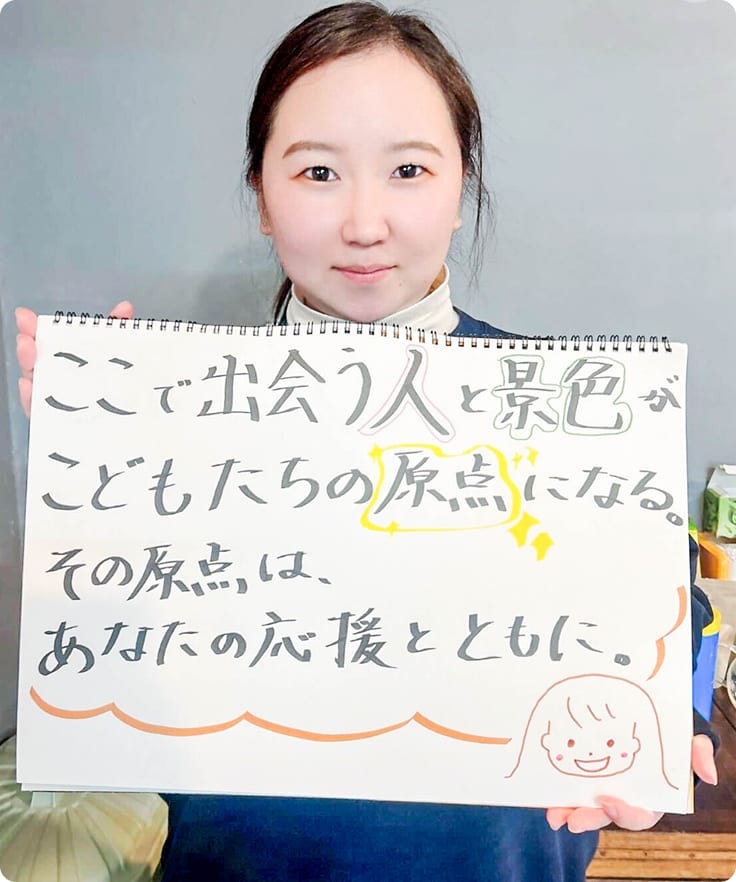 ここで出会う人と景色が
こどもたちの原点になる。
その原点は、
あなたの応援とともに。